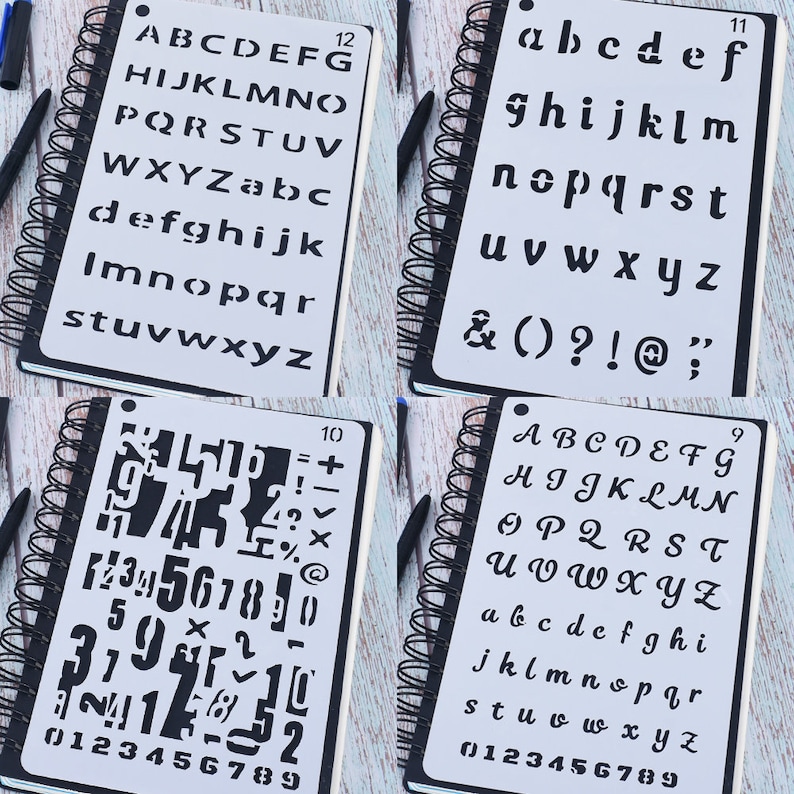 12
A B C D E F G
H I J K L M N O
P Q R S T U V
W X Y Z a b c
d e f g h i j k
l m n o p q r
s t u v w x y z
11
a b c d e f
g h i j k l m
n o p q r s t
u v w x y z
& ( ) ? ! @ " ;
10
= +
! —
? ✓
% ×
@
1 2 3 4 5 6 7 8 9 0
0 1 2 3 4 5 6 7 8 9
9
A B C D E F G
H I J K L M N
O P Q R S T
U V W X Y Z
a b c d e f g h i
j k l m n o p q r
s t u v w x y z
0 1 2 3 4 5 6 7 8 9